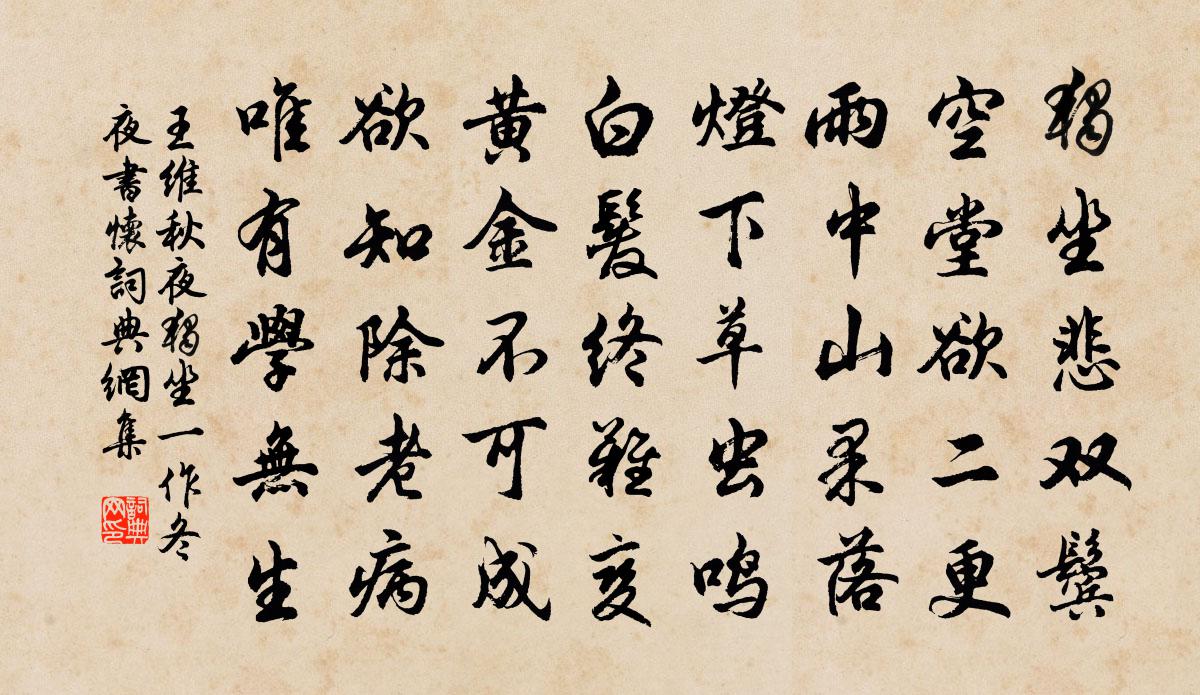 獨坐悲双鬢
空堂欲二更
雨中山果落
燈下草虫鳴
白髮終難变
黄金不可成
欲知除老病
唯有學無生
王維秋夜獨坐一作冬
夜書懷詞典網集
詞典
网印